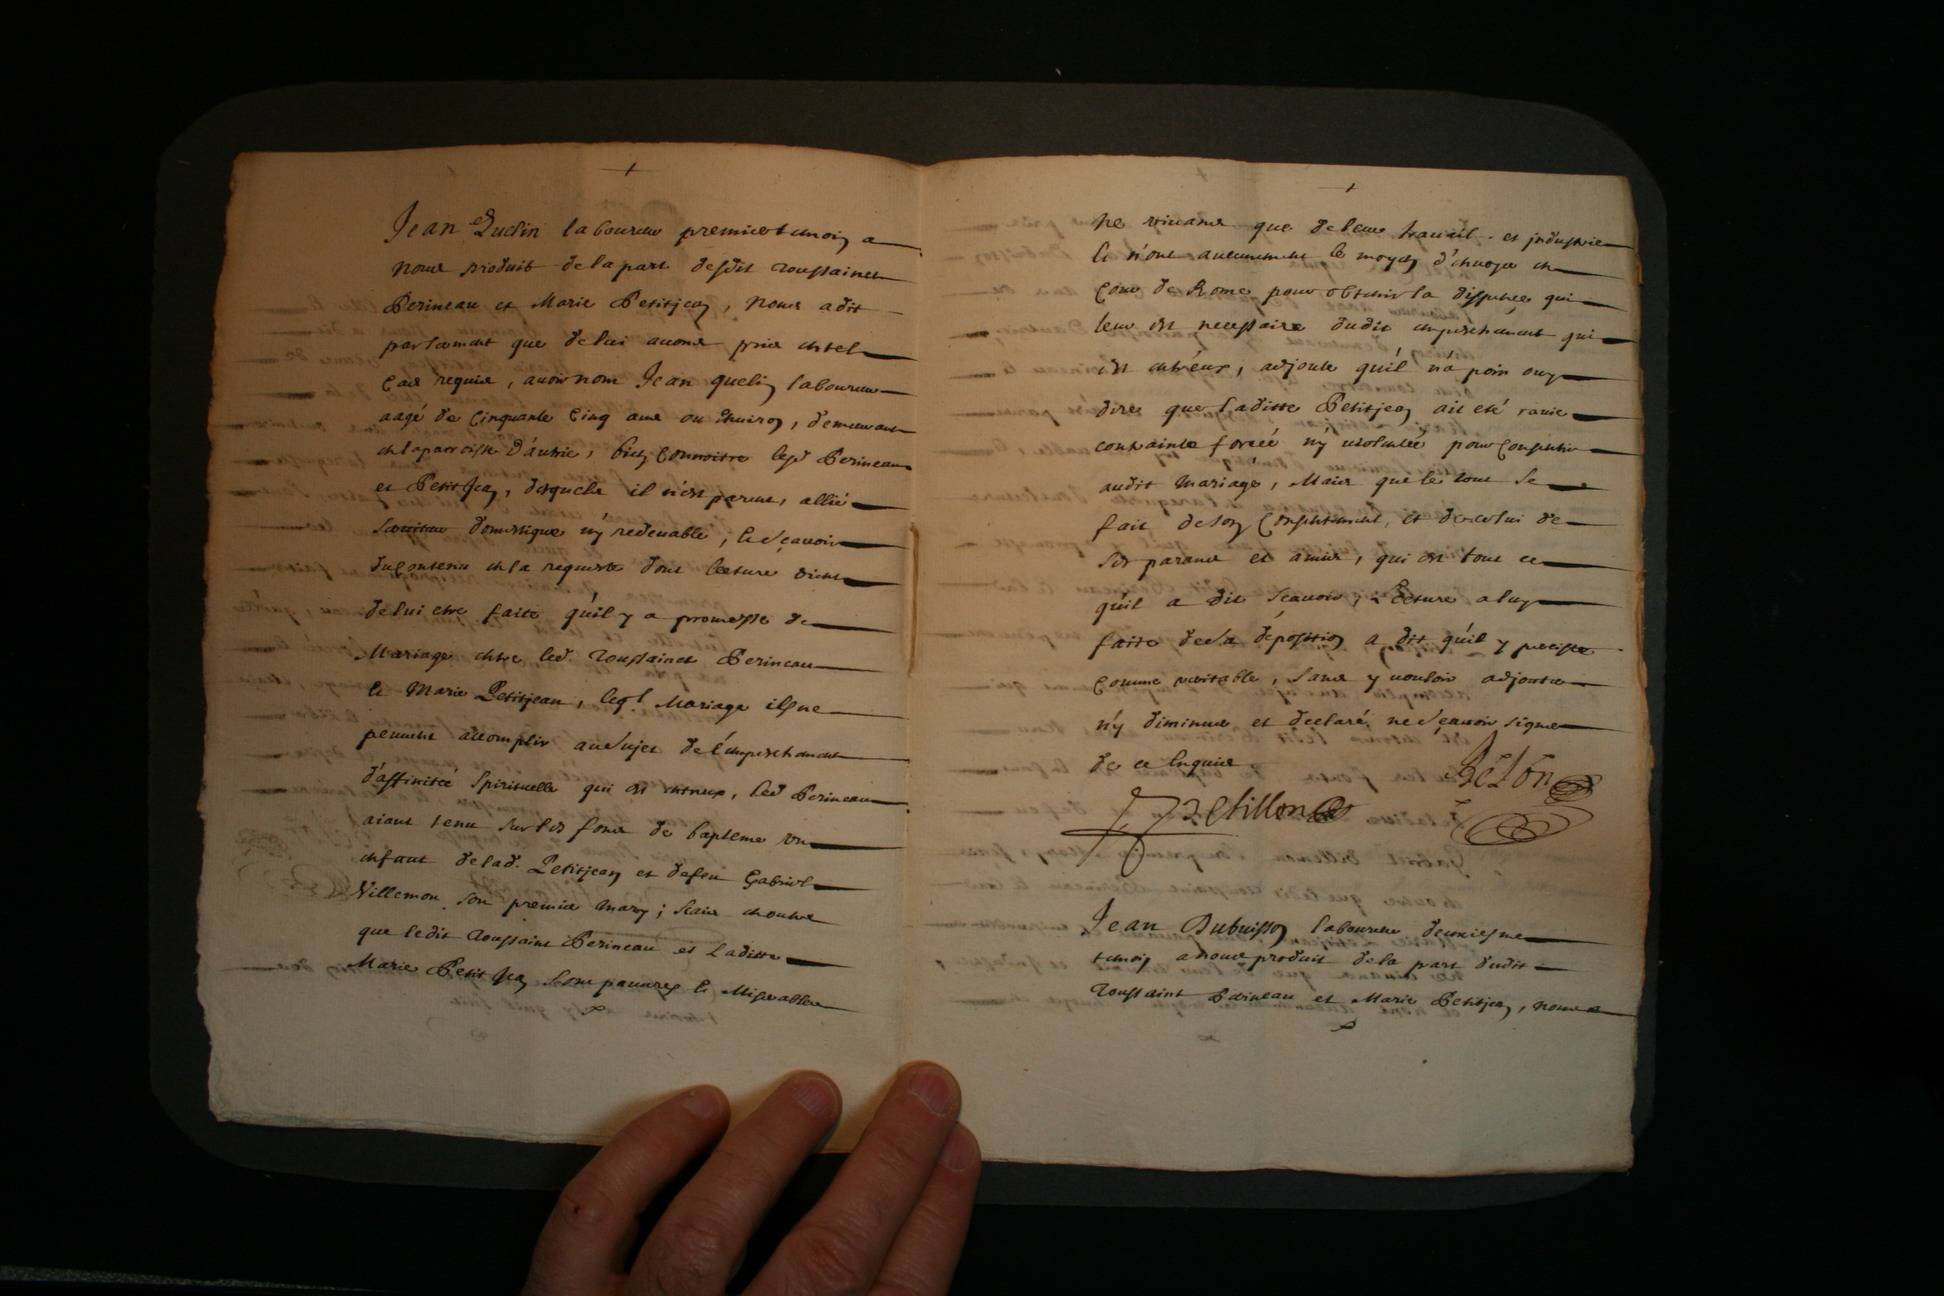 Jean Quelin laboureur premier temoin a
nous produit de la part desdit Toussainct
Perineau et Marie Petitjean, nous a dit
par serment que de lui avons pris en tel
cas requis, avoir nom Jean quelin laboureur
aagé de cinquante cinq ans ou environ, demeurant
en la parroisse D'autrie, bien connoitre lesd Perineau
et Petit Jean, desquels il n'est parent, allié
serviteur domestique n'y redevable, et sçavoir
du contenu en la requeste dont lecture vient
de lui etre faite qu'il y a promesse de
Mariage entre led. Toussainct Perineau
et Marie Petitjean, leql Mariage ils ne
peuvent accomplir au sujet de l'empeschement
d'affinitéé spirituelle qui est entreux, led Perineau
aiant tenu sur les fons de bapteme un
enfant de lad. Petitjean et defeu Gabriel
Villemon son premier mary; scait en outre
que ledit Toussaint Perineau et Laditte
Marie Petit Jean sont pauvres et Miserables
ne vivans que de leur travail et industrie
et n'ont aucunement le moyen d'envoyer en
cour de Rome pour obtenir la dispense qui
leur est necessaire dudit empeschement qui
est entr'eux, adjoute qu'il n'a poin ouy
dire que laditte Petitjean ait eté ravie
contrainte forcéé n'y violentéé pour consentir
audit Mariage, Mais que le tout se
fait de son consentement, et de celui de
ses parans et amis, qui est tout ce
qu'il a dit scavoir, Lecture a luy
faite de sa déposition a dit qu'il y persiste
comme veritable, sans y vouloir adjouter
n'y diminuer et declaré ne sçavoir signer
de ce Enquis
Jean Dubuisson laboureur deuxiesme
temoin a nous produit de la part dudit
Toussaint Perineau et Marie Petitjean, nous a